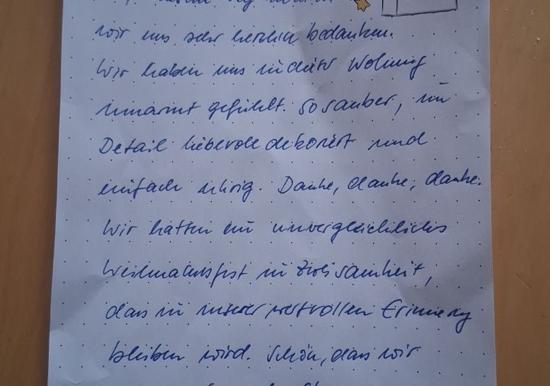 wir uns sehr herzlich bedanken.
Wir haben uns in dieser Wohnung
umarmt gefühlt. So sauber, im
Detail liebevoll dekoriert und
einfach uhrig. Danke, danke, danke.
Wir hatten ein unvergleichliches
Weihnachtsfest in Zweisamkeit,
das in unserer wertvollen Erinnerung
bleiben wird. Schön, dass wir